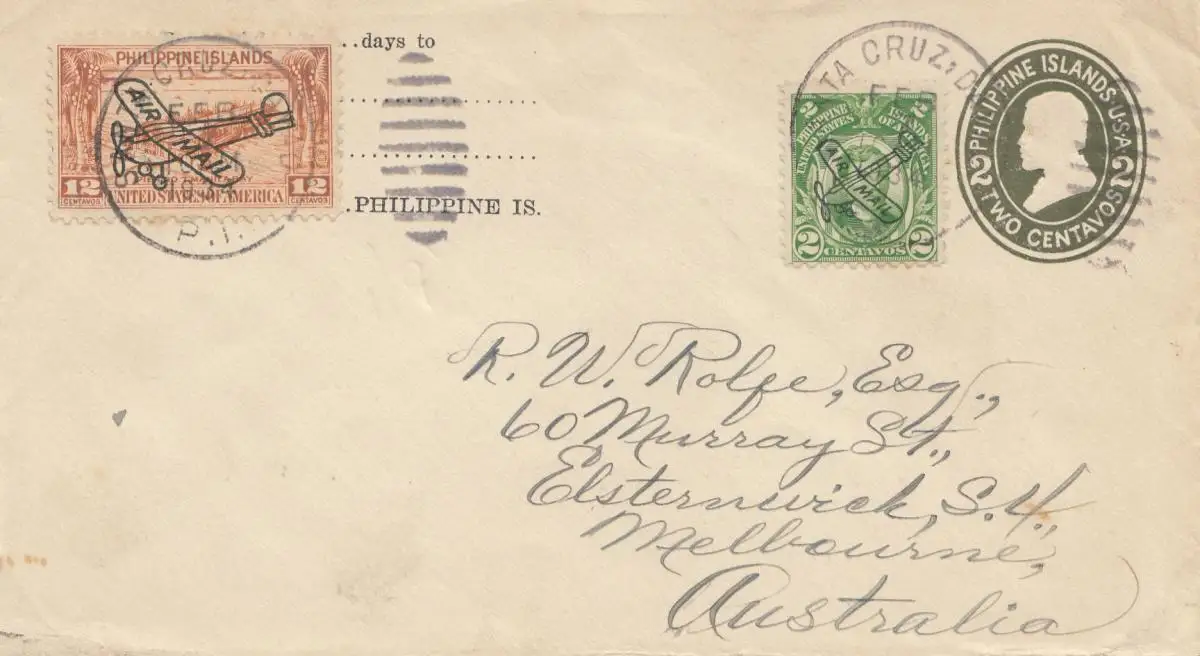 ..days to
PHILIPPINE IS.
PHILIPPINE ISLANDS
AIR MAIL
12 12
CENTAVOS CENTAVOS
UNITED STATES OF AMERICA
CRUZ,
FEB
1934
P.I.
TA CRUZ, D
2 2
PHILIPPINE ISLANDS
UNITED STATES OF AMERICA
AIR MAIL
2 CENTAVOS 2
PHILIPPINE ISLANDS·U·S·A·
2 2
TWO CENTAVOS
R. W. Rolfe, Esq.,
60 Murray St.,
Elsternwick, S.4.,
Melbourne,
Australia